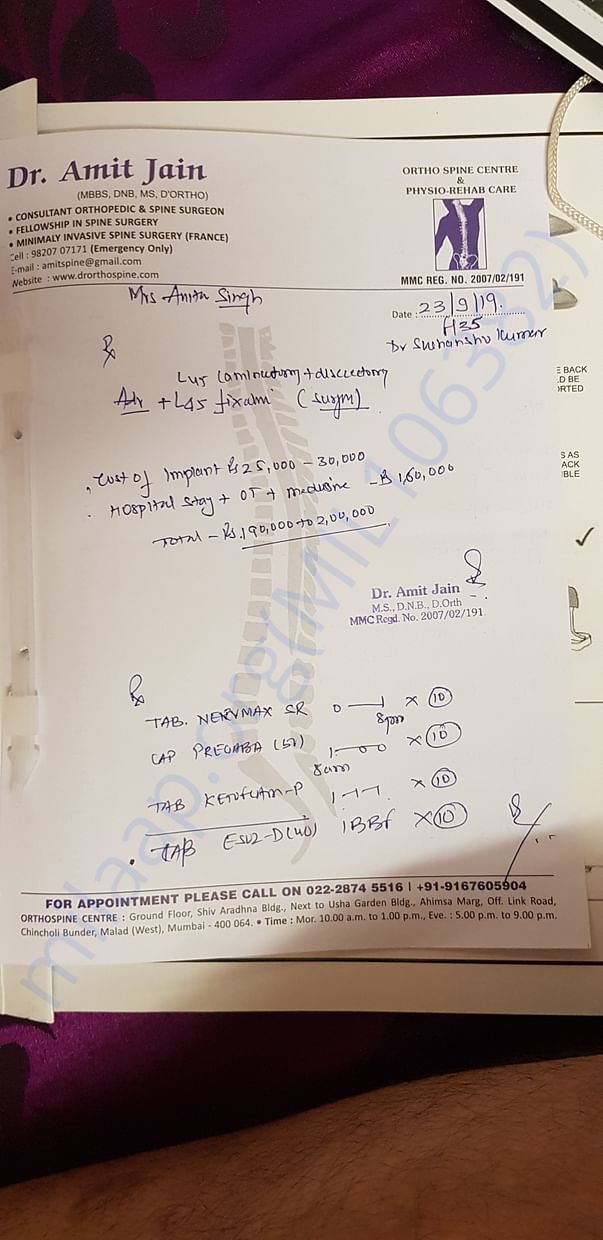 Dr. Amit Jain
(MBBS, DNB, MS, D'ORTHO)
• CONSULTANT ORTHOPEDIC & SPINE SURGEON
• FELLOWSHIP IN SPINE SURGERY
• MINIMALY INVASIVE SPINE SURGERY (FRANCE)
Cell : 98207 07171 (Emergency Only)
E-mail : amitspine@gmail.com
Website : www.drorthospine.com
ORTHO SPINE CENTRE
&
PHYSIO-REHAB CARE
MMC REG. NO. 2007/02/191
Mrs Anita Singh
Date : 23/9/19.
Dr Sudhanshu Kumar
℞
L45 laminectomy + discectomy
Adv + L45 fixam (surgm)
. Cost of Implant Rs 25,000 - 30,000
. Hospital stay + OT + medicine - Rs 1,60,000
Total - Rs. 190,000 to 2,00,000
Dr. Amit Jain
M.S., D.N.B., D.Orth
MMC Regd. No. 2007/02/191
℞
TAB. NERVMAX SR 0 — 1 x 10
8pm
CAP PREGABA 1—0 0 x 10
8am
TAB KETOFLAM-P 1-1-1 x 10
. TAB ESOZ-D (40) 1BBF x 10
FOR APPOINTMENT PLEASE CALL ON 022-2874 5516 | +91-9167605904
ORTHOSPINE CENTRE : Ground Floor, Shiv Aradhna Bldg., Next to Usha Garden Bldg., Ahimsa Marg, Off. Link Road,
Chincholi Bunder, Malad (West), Mumbai - 400 064. • Time : Mor. 10.00 a.m. to 1.00 p.m., Eve. : 5.00 p.m. to 9.00 p.m.
E BACK
LD BE
ORTED
S AS
ACK
BLE
milaap.org(MIL 106332)